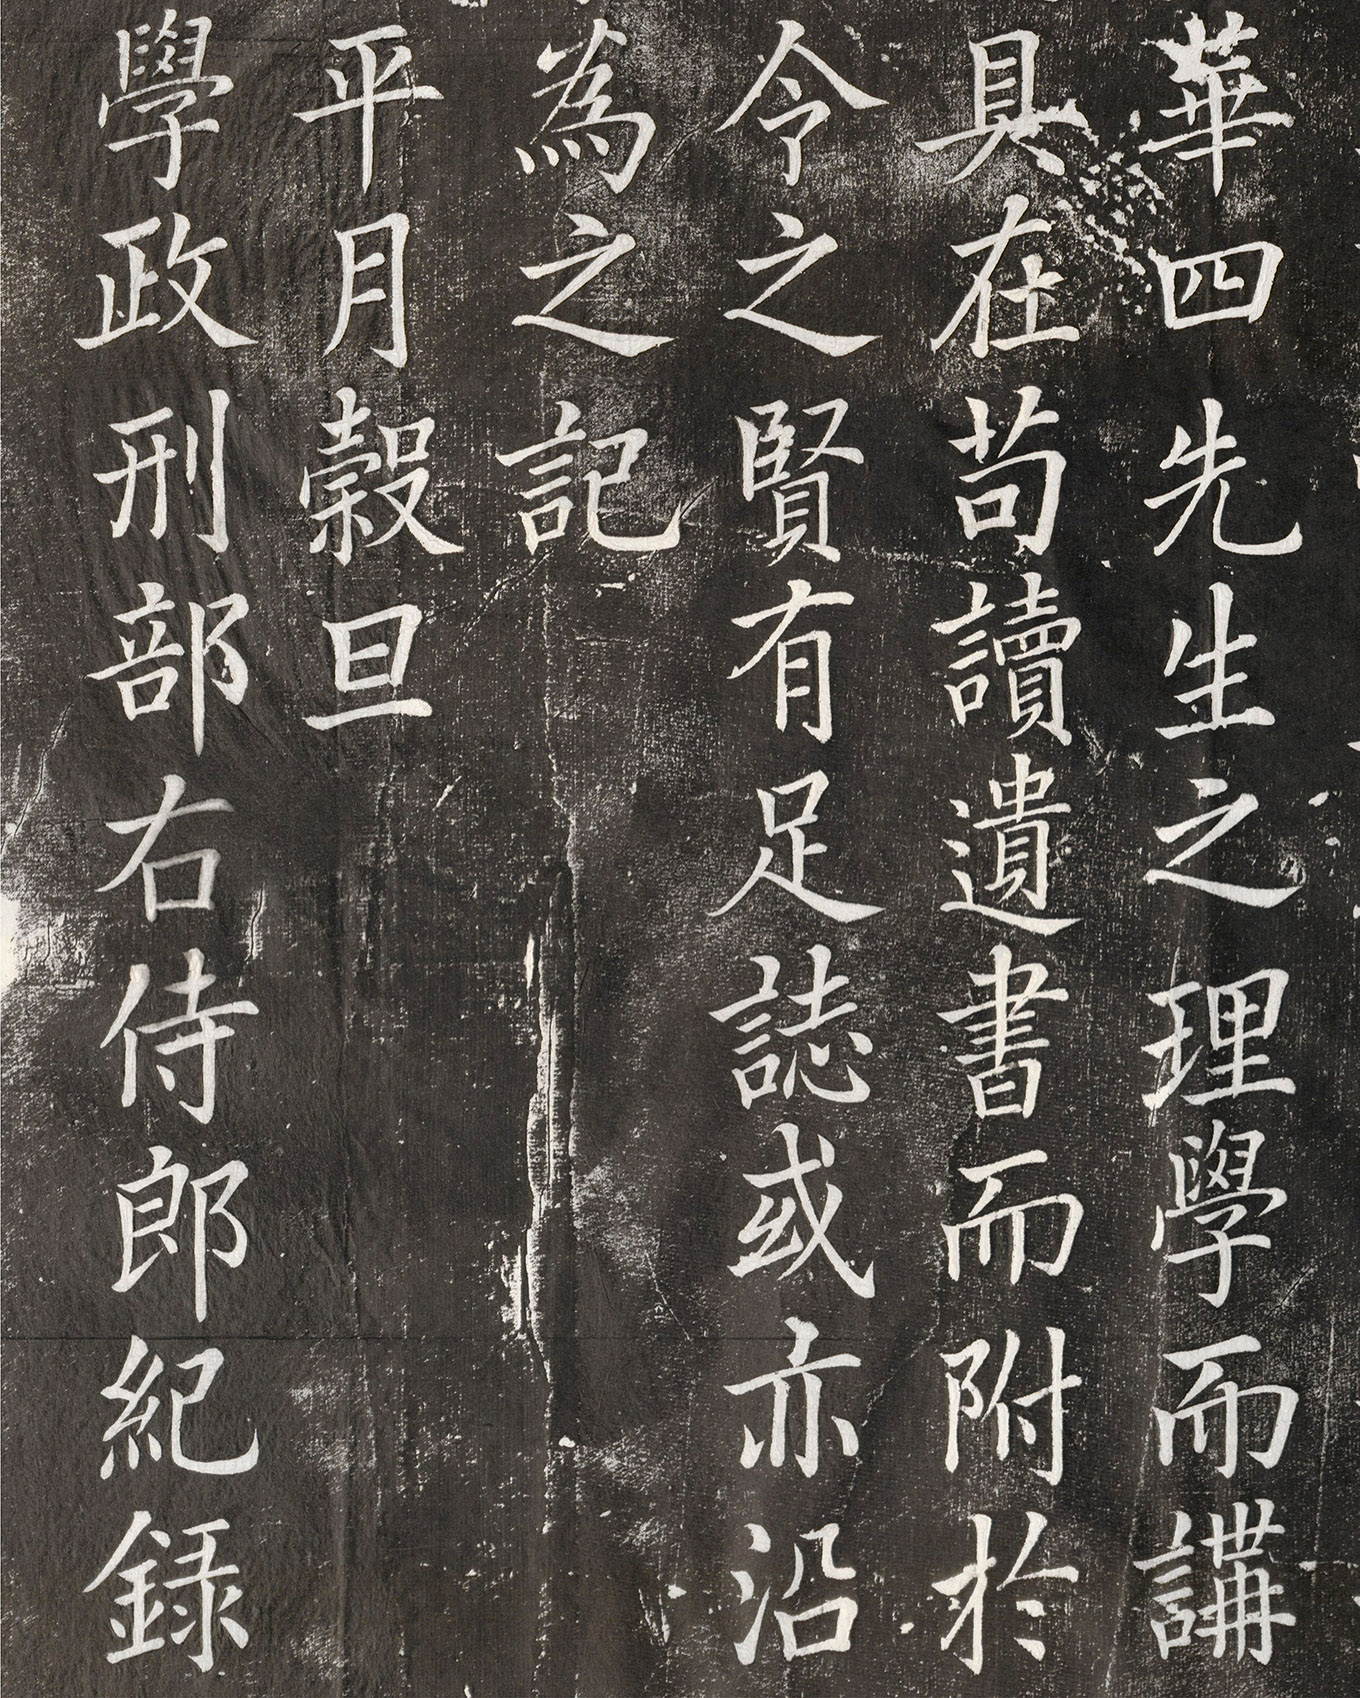 華四先生之理學而講
具在苟讀遺書而附於
令之賢有足誌或亦沿
為之記
平月穀旦
學政刑部右侍郎紀録